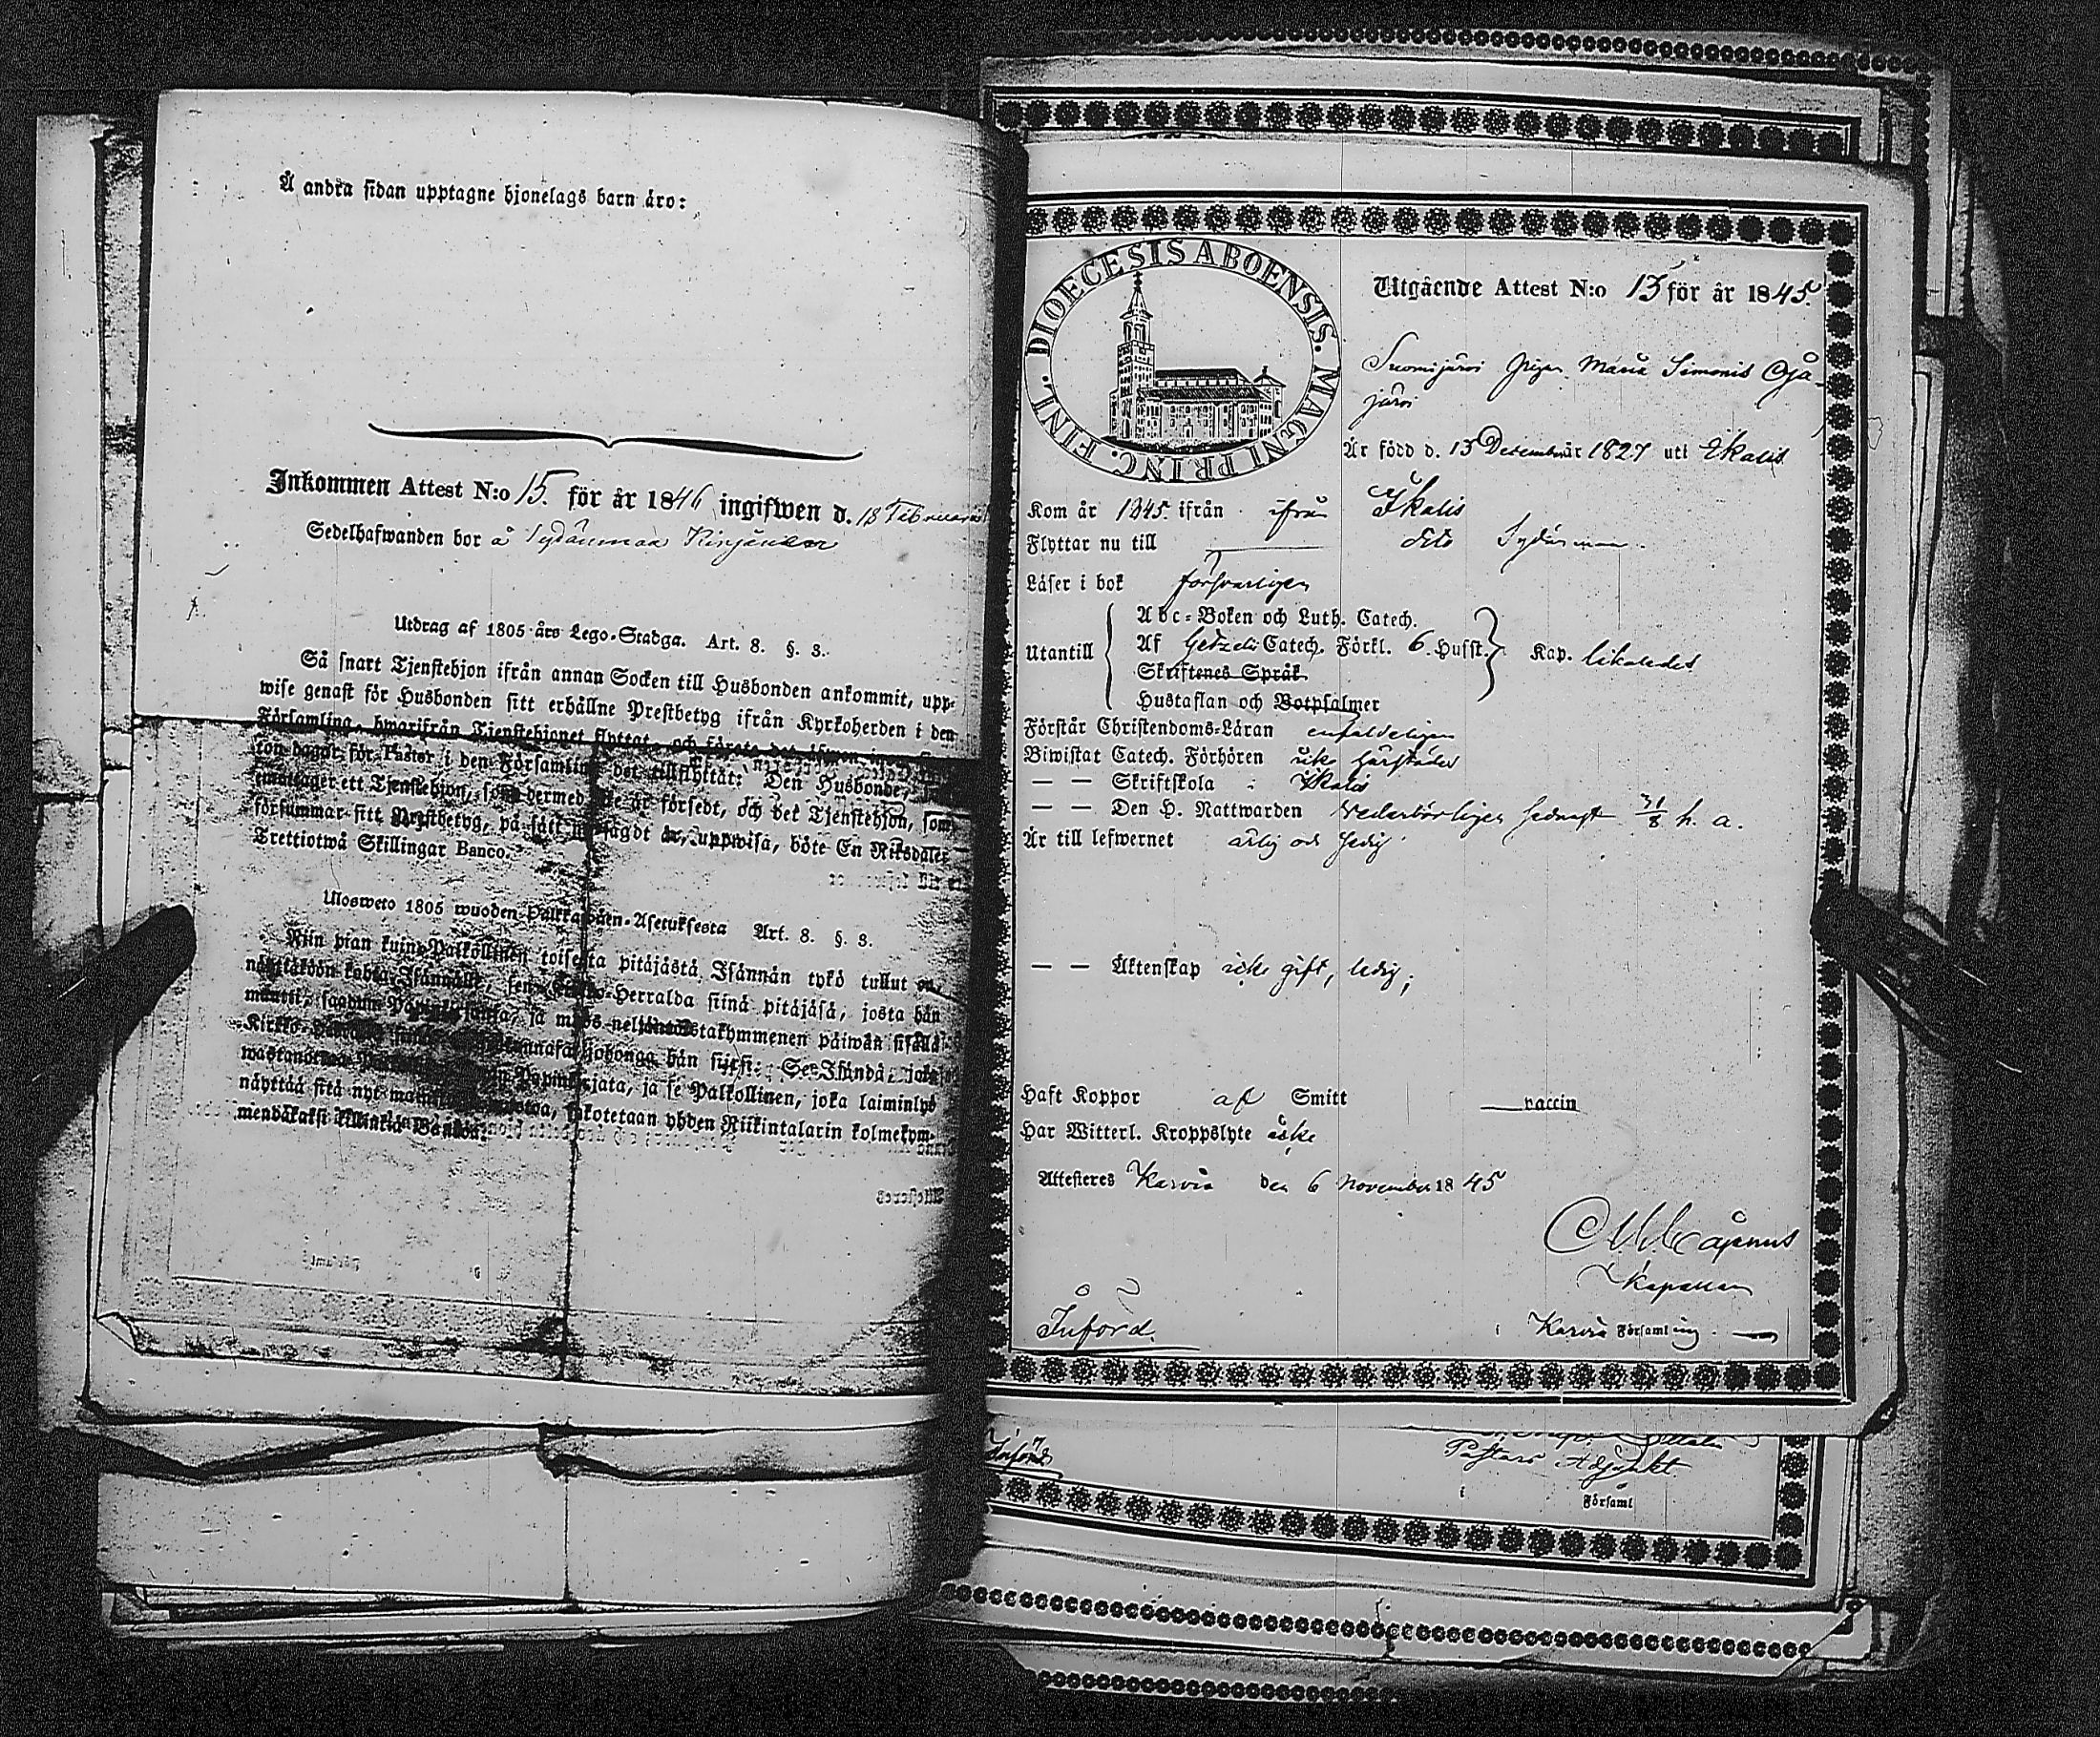 Å andra sidan upptagne hjonelags barn äro:
Inkommen Attest N:o 15. för år 1846 ingifwen d. 18 Februari
Sedelhafwanden bor å Sydänmaa
Utdrag af 1805 års Lego-Stadga. Art. 8. §. 3.
Så snart Tjenstehjon ifrån annan Socken till Husbonden ankommit, upp-
wise genast för Husbonden sitt erhållne Prestbetyg ifrån Kyrkoherden i den
Församling, hwarifrån Tjenstehjonet flyttat, och förete det
ton dagar för Pastor i den Församling det tillflyttat: Den Husbonde,
emottager ett Tjenstehjon, som dermed ej är försedt, och det Tjenstehjon, som
försummar sitt Prestbetyg, på sätt sagdt är, uppwisa, böte En Riksdaler
Trettiotwå Skillingar Banco.
Ulosweto 1805 wuoden Palkkawäen-Asetuksesta Art. 8. §. 3.
Niin pian kuin Palkollinen toisesta pitäjästä Isännän tykö tullut on,
näyttäköön kohta Isännälle, sen Kirkko-Herralda siinä pitäjäsä, josta hän
muutti, saadun Papinkirjansa, ja myös neljäntoistakymmenen päiwän sisällä
Kirkko-Herralle siinä Seurakunnasa, johonga hän siirsi: Se Isändä, joka
wastanottaa Palkollisen Papinkirjata, ja se Palkollinen, joka laiminlyö
näyttää sitä nyt mainitulla tawalla, sakotetaan yhden Riikintalarin kolmekym-
mendäkaksi Killinkiä Bankoa.
DIOECESIS ABOENSIS. MAGNI PRINC. FINL.
Utgående Attest N:o 13 för år 1845.
Suomijärvi Pigan Maria Simonis Oja-
järvi
Är född d. 13 December år 1827 uti Ikalis
Kom år 1845. ifrån ifrån Ikalis
Flyttar nu till dito Sydänmaa
Läser i bok försvarligen
Abc-Boken och Luth. Catech.
Utantill Af Getzeli Catech. Förkl. 6. Hufst. Kap. likaledes
Skriftenes Språk
Hustaflan och Botpsalmer
Förstår Christendoms-Läran enfaldeligen
Biwistat Catech. Förhören icke härstädes
— — Skriftskola : Ikalis
— — Den H. Nattwarden vederbörligen sednast 31/8 h. a.
Är till lefwernet ärlig och sedig
— — Äktenskap icke gift, ledig;
Haft Koppor af Smitt vaccin
Har Witterl. Kroppslyte icke
Attesteres Karvia den 6 November 1845
Kapellan
Införd. i Karvia Församling.
Införd
Pastors Adjunkt
i Församl